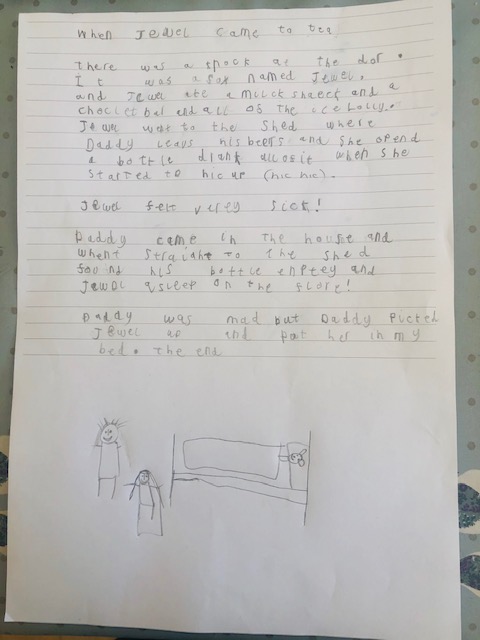 When Jewel came to tea
there was a snock at the dor.
It was a fox named Jewel.
and Jewel ate a milck sheeck and a
choclet bal and all of the icelolly.
Jewel went to the shed where
Daddy leavs his beers and she opend
a bottle drank all of it when she
started to hic up (hic hic).
Jewel felt verey sick!
Daddy came in the house and
whent straight to the shed
found his bottle emptey and
Jewel asleep on the flore!
Daddy was mad but Daddy
Jewel up and put her in my
bed. the end